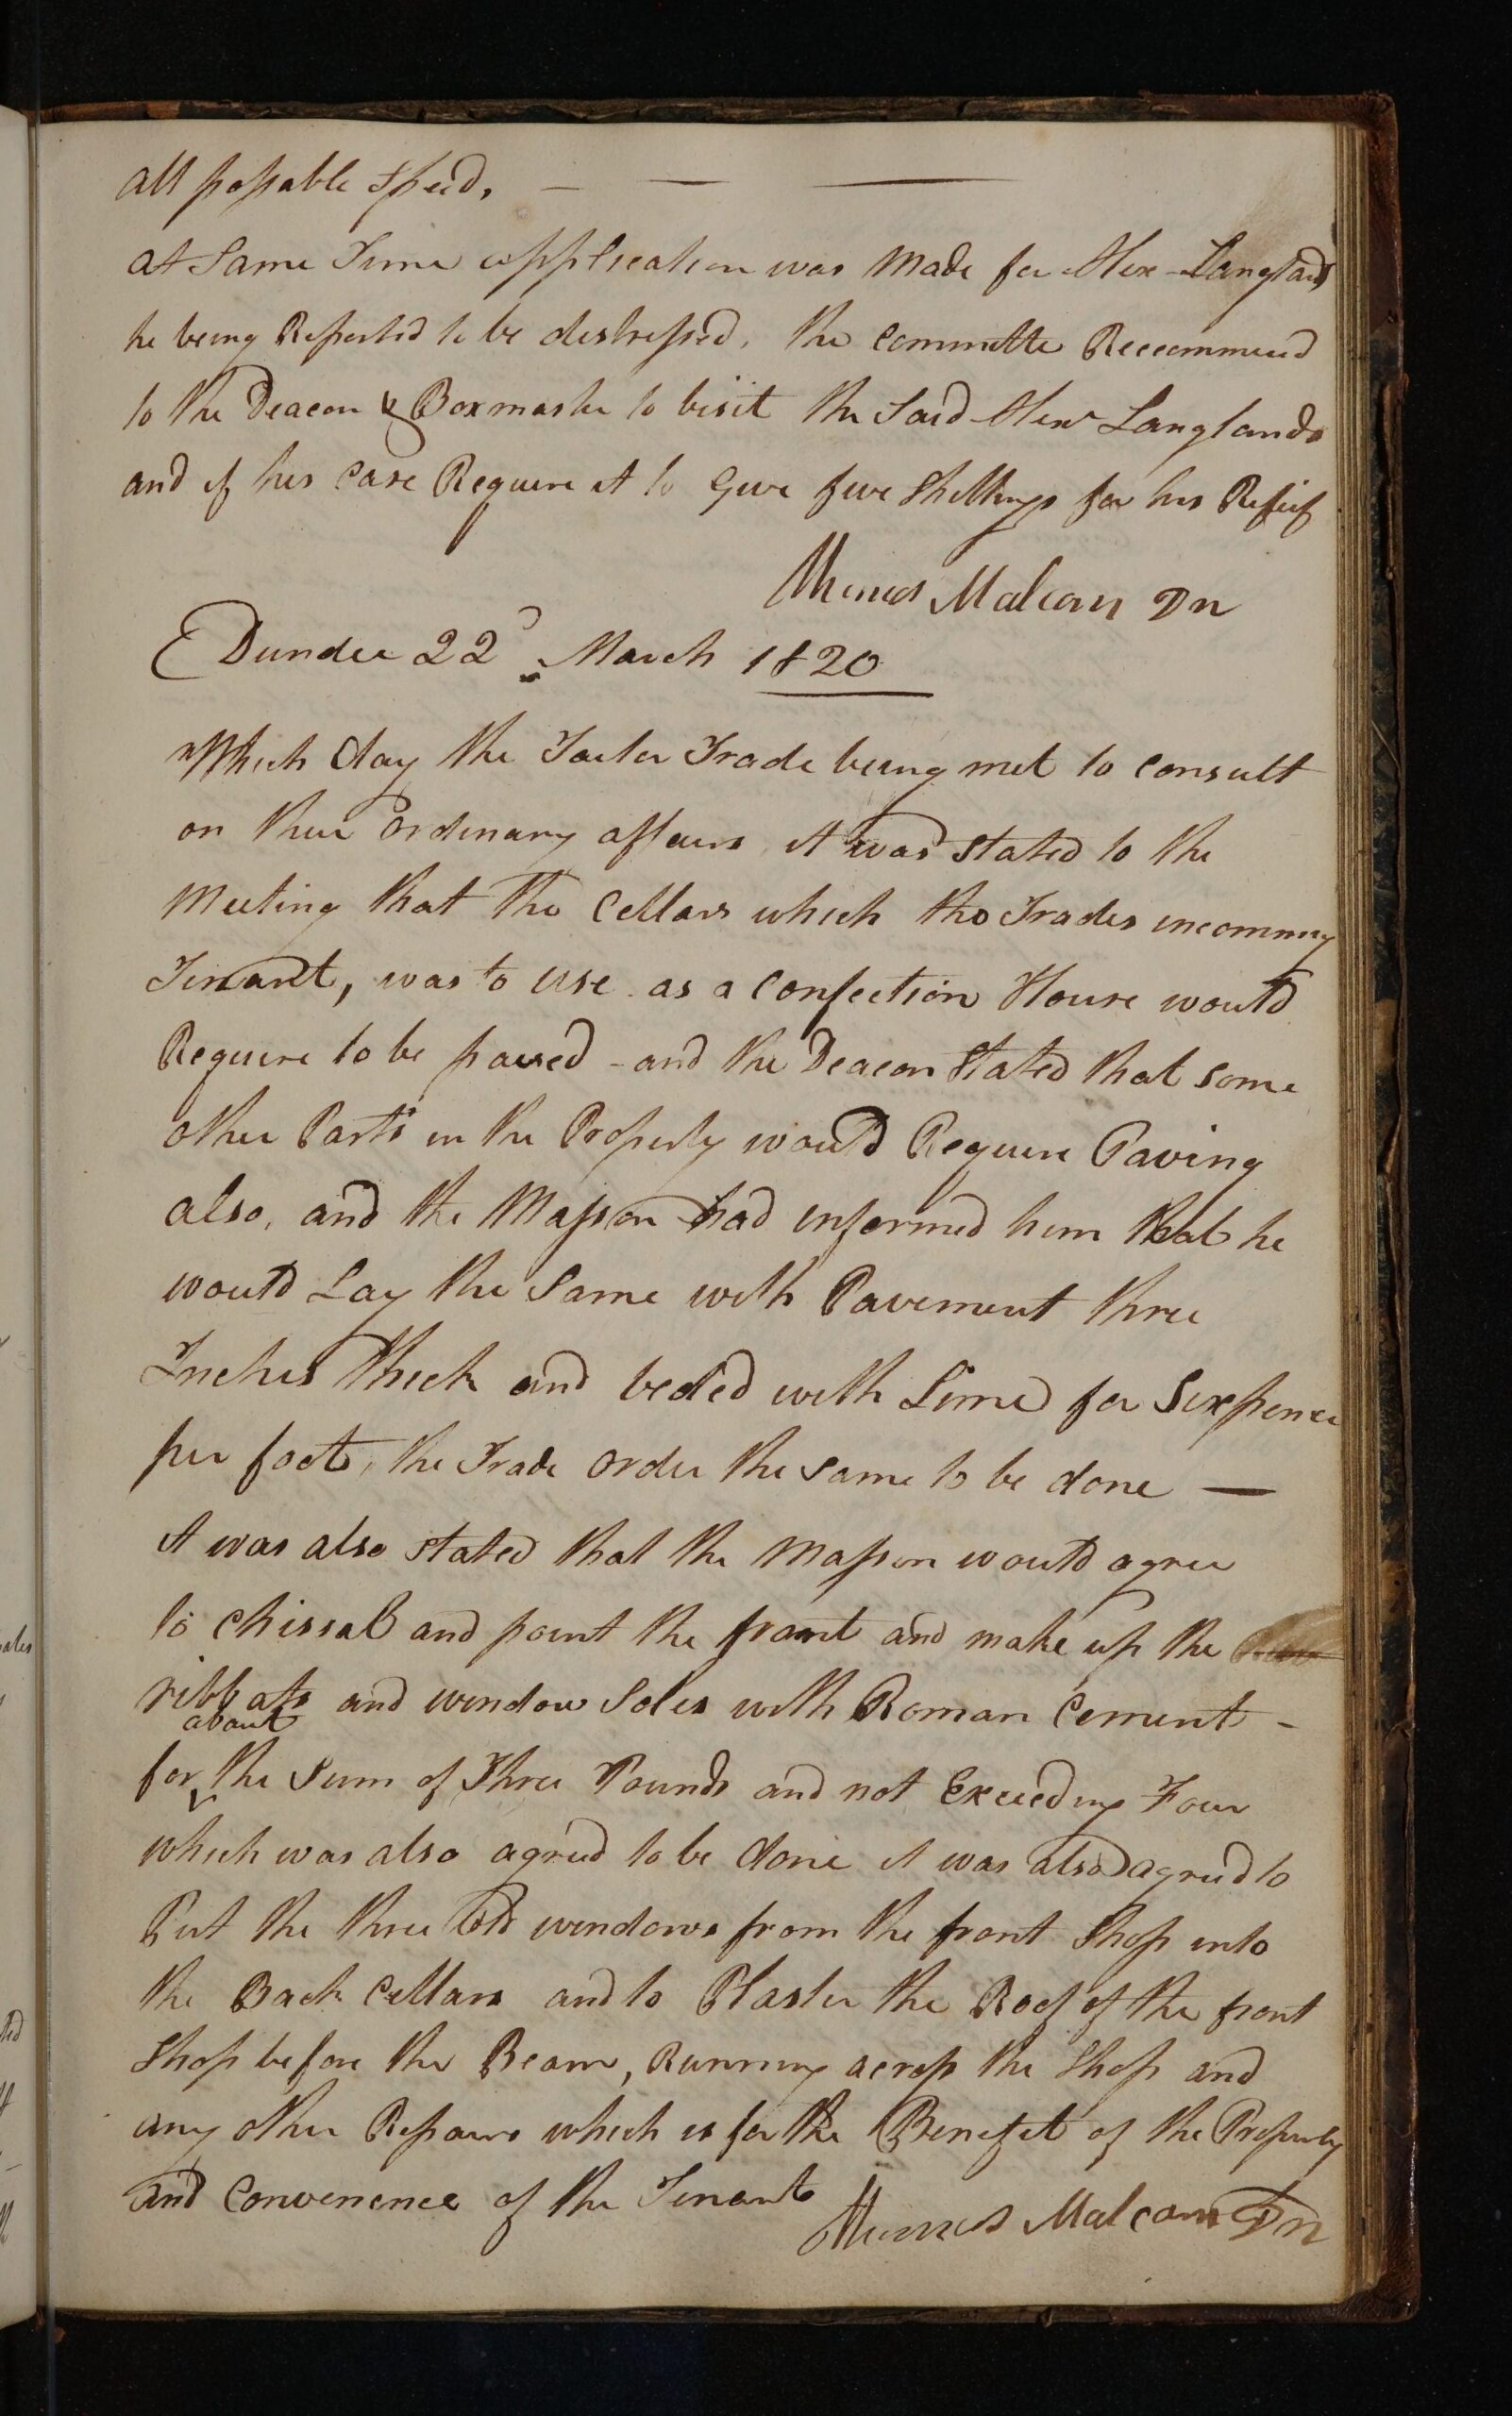 all possable Speed, — — —
at Same Time application was Made for Alexr Langlands
he being Reported to be distressed, the Committe Reccommend
to the Deacon & Boxmaster to visit the Said Alexr Langlands
and if his Case Require it to Give five Shillings for his Relief
Thomas Malcom Dn
Dundee 22d March 1820
Which day the Tailor Trade being met to Consult
on their ordinary affairs it was Stated to the
Meeting that the Cellars which the Trades incomming
Tenant, was to use as a Confection House would
Require to be paved - and the Deacon Stated that some
other Parts in the Property would Require Paving
also, and the Masson had informed him that he
would Lay the Same with Pavement three
Inches thick and beded with Lime for Sixpence
per foot, the Trade order the same to be done —
it was also stated that the Masson would agree
to Chissal and point the front and make up the
ribbats and window Soles with Roman Cement -
about
for the Sum of Three Pounds and not Exceeding Four
which was also agreed to be done it was also agreed to
Put the three old windows from the front Shop into
the Back Cellars and to Plaster the Roof of the front
Shop before the Beam, Running across the Shop and
any other Repairs which is for the Benefit of the Property
and Convenence of the Tenants
Thomas Malcom Dn